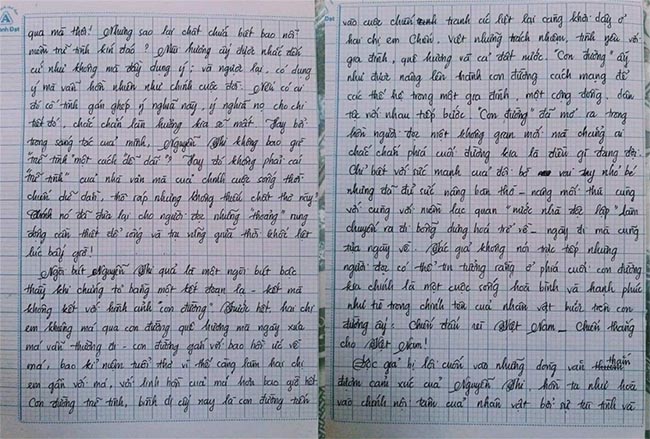 qua má thôi! Nhưng sao lại chất chứa biết bao nỗi
niềm trữ tình kín đáo? Mùi hương ấy được nhắc đến
cứ như không mà đầy dụng ý; và ngược lại, có dụng
ý mà vẫn hồn nhiên như chính cuộc đời. Nếu có ai
đó cố tình gán ghép ý nghĩa này, ý nghĩa nọ cho chi
tiết đó, chắc chắn làn hương kia sẽ mất. Hay bởi
trong sáng tác của mình, Nguyễn Thi không bao giờ
"trữ tình" một cách dễ dãi? Hay đó không phải cái
"trữ tình" của nhà văn mà của chính cuộc sống thời
chiến dẻo dai, thô ráp nhưng không thiếu chất thơ này?
nó đã đưa lại cho người đọc những thoáng rung
động cần thiết để sống và tin vững giữa thời khốc liệt
lúc bấy giờ!
Ngòi bút Nguyễn Thi quả là một ngòi bút bậc
thầy khi chúng ta bàng một kết đoạn lạ - kết mà
không kết với hình ảnh "con đường". Trước hết, hai chị
em khiêng má qua con đường quê hương mà ngày xưa
má vẫn thường đi - con đường gắn với bao hồi ức về
má, bao kỉ niệm tuổi thơ vì thế càng làm hai chị
em gắn với má, với linh hồn của má hơn bao giờ hết.
Con đường trữ tình, bình dị ấy nay là con đường tiến
A
nh Đạt
vào cuộc chiến tranh ác liệt lại càng khơi dậy ở
hai chị em Chiến, Việt những trách nhiệm, tình yêu với
gia đình, quê hương và cả đất nước. "Con đường" ấy
như được nâng lên thành con đường cách mạng để
các thế hệ trong một gia đình, một cộng đồng, dân
tộc nối nhau tiếp bước. "Con đường" đã mở ra trong
lòng người đọc một không gian mới mà chúng ai
chắc chắn phía cuối đường kia là điều gì đang đợi.
Chỉ biết với sức mạnh của đôi bờ vai tuy nhỏ bé
nhưng đã đủ sức nâng bàn thờ - nâng mối thù cùng
với cùng với niềm lạc quan "nước nhà độc lập" làm
chuyến ra đi bỗng dưng hoá trở về - ngày đi mà cũng
tựa ngày về. Tác giả không nói trực tiếp nhưng
người đọc có thể tin tưởng rằng ở phía cuối con đường
kia chính là một cuộc sống hoà bình và hạnh phúc
như từ trong chính tên của nhân vật bước trên con
đường ấy: Chiến đấu vì Việt Nam - Chiến thắng
cho Việt Nam!
Độc giả bị lôi cuốn vào những dòng văn thấm
đượm cảm xúc của Nguyễn Thi, hồn ta như hoà
vào chính nội tâm của nhân vật bởi sự trữ tình và